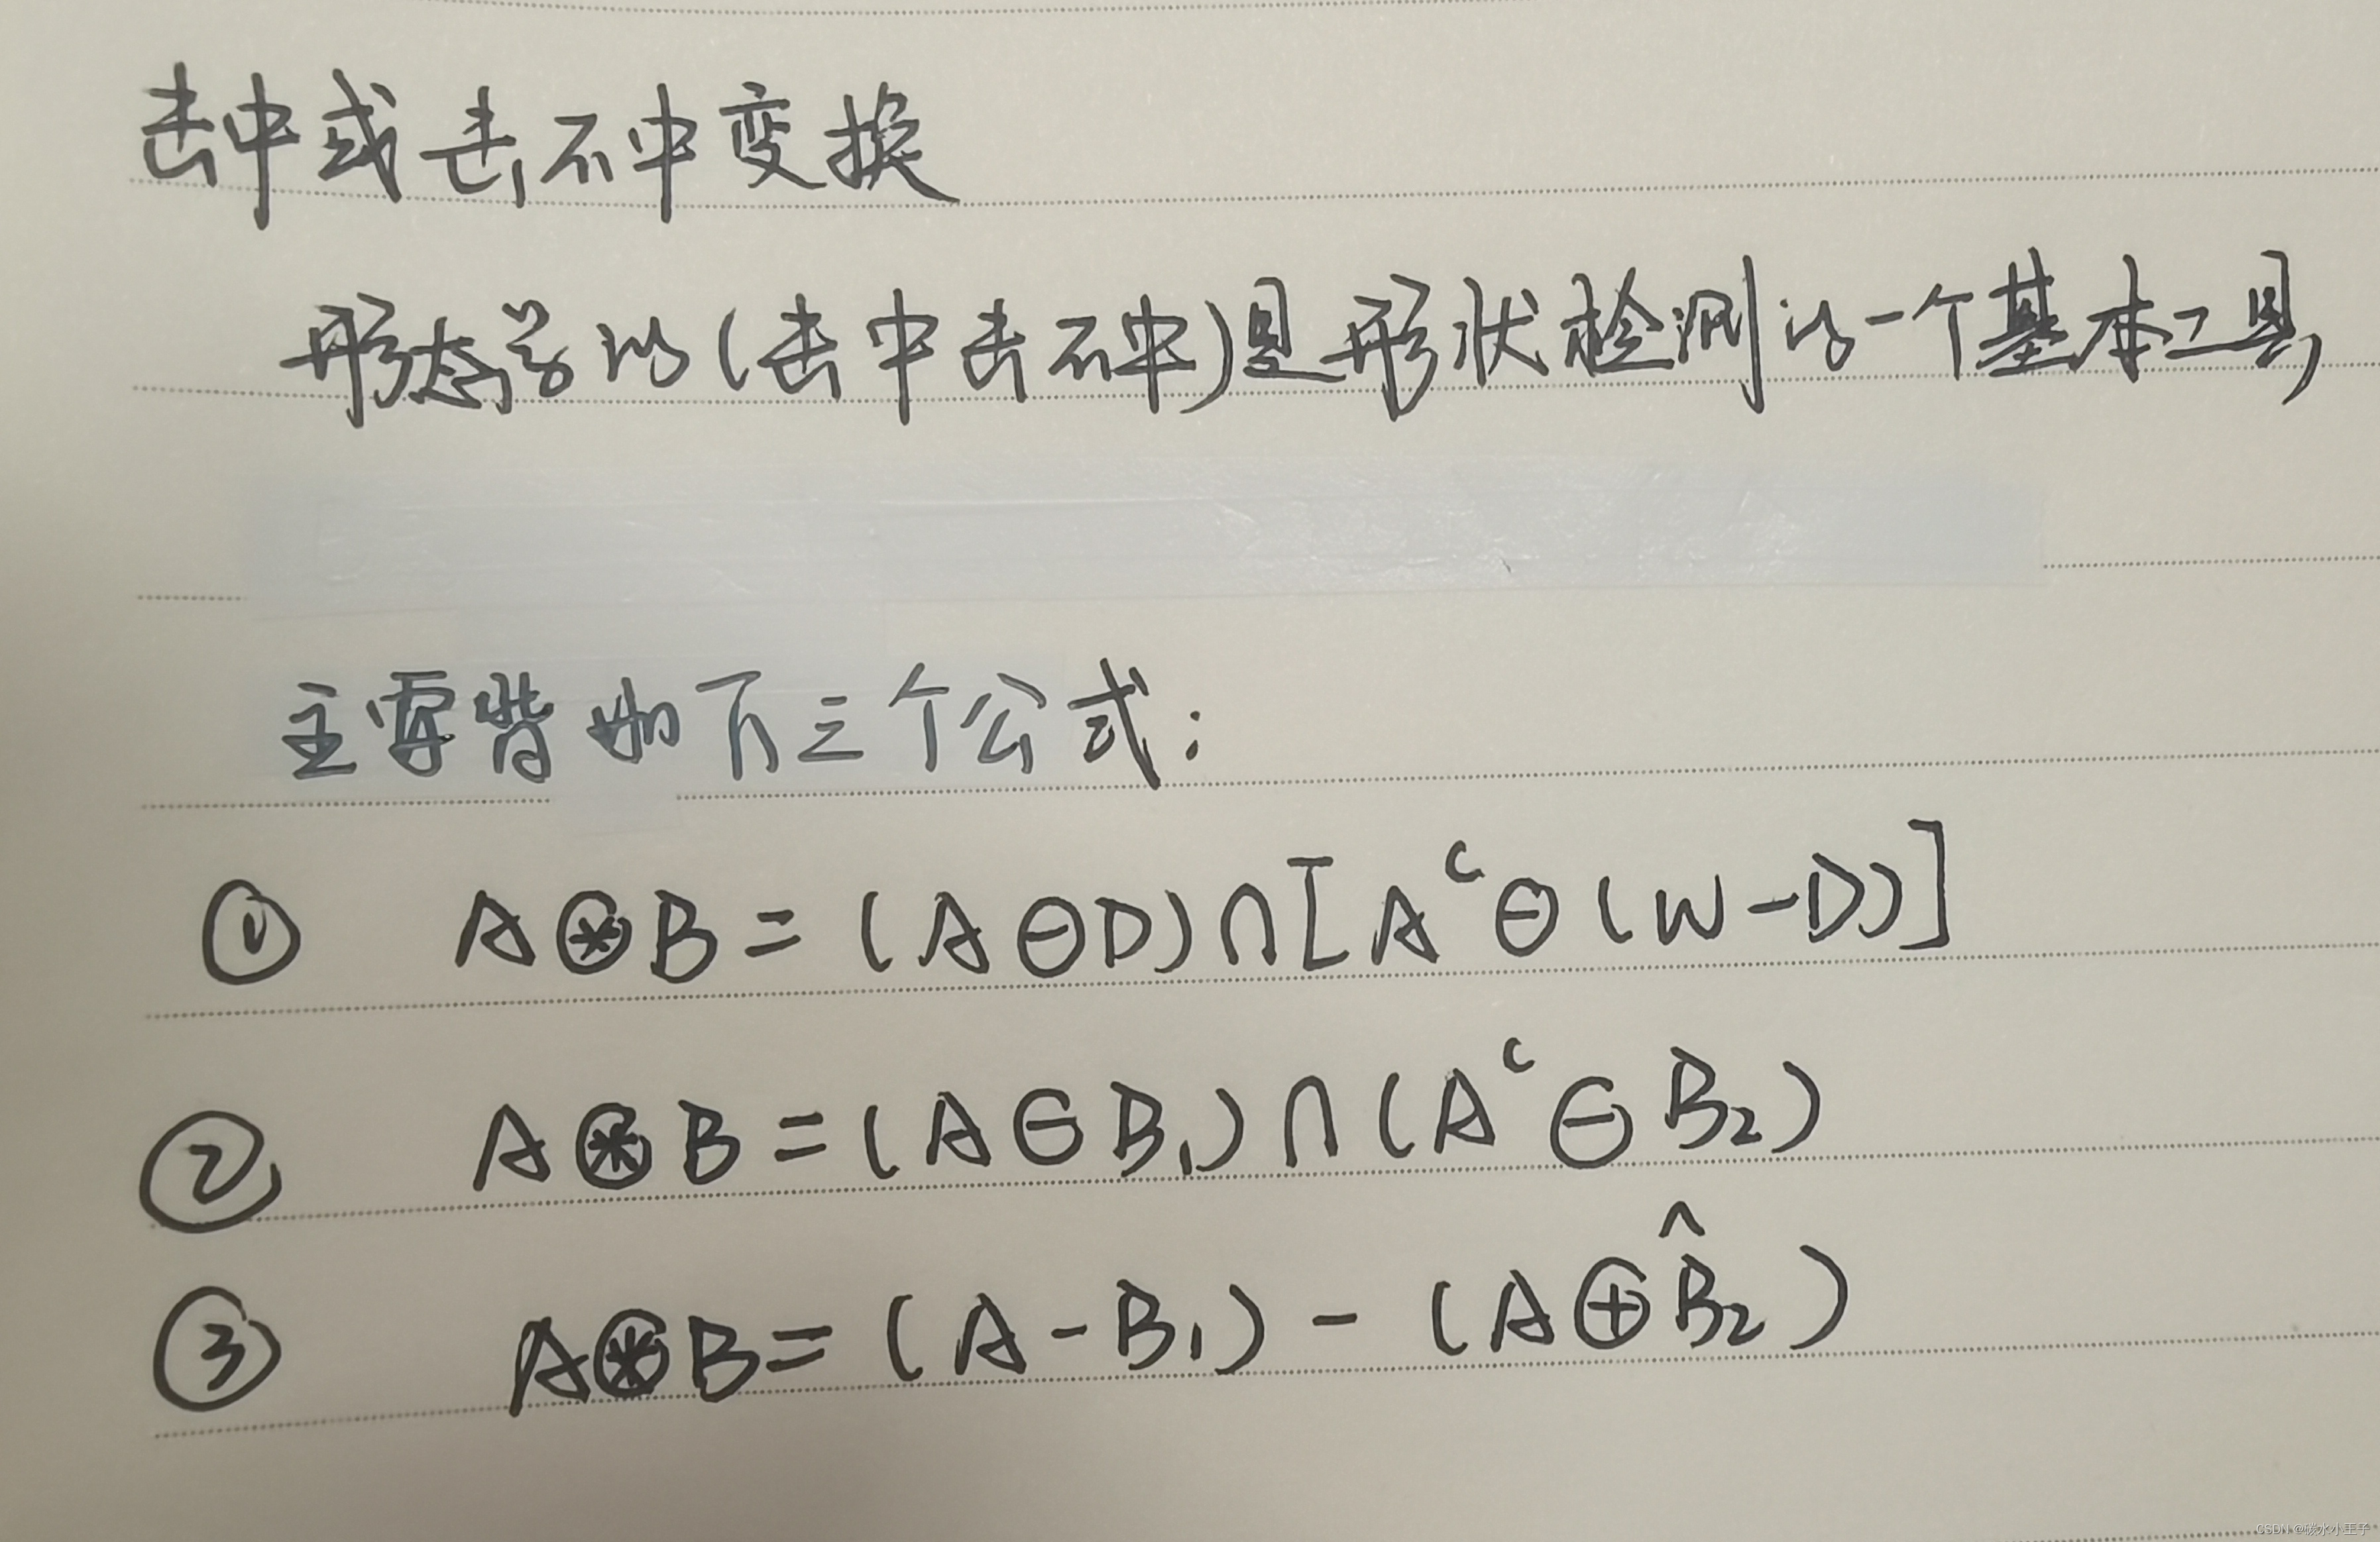 击中或击不中变换
形态学的(击中击不中)是形状检测的一个基本工具
主要背如下三个公式:
① A⊛B=(A⊖D)∩[A^c⊖(W-D)]
② A⊛B=(A⊖B₁)∩(A^c⊖B₂)
③ A⊛B=(A-B₁)-(A⊕B̂₂)
CSDN @碳水小王子